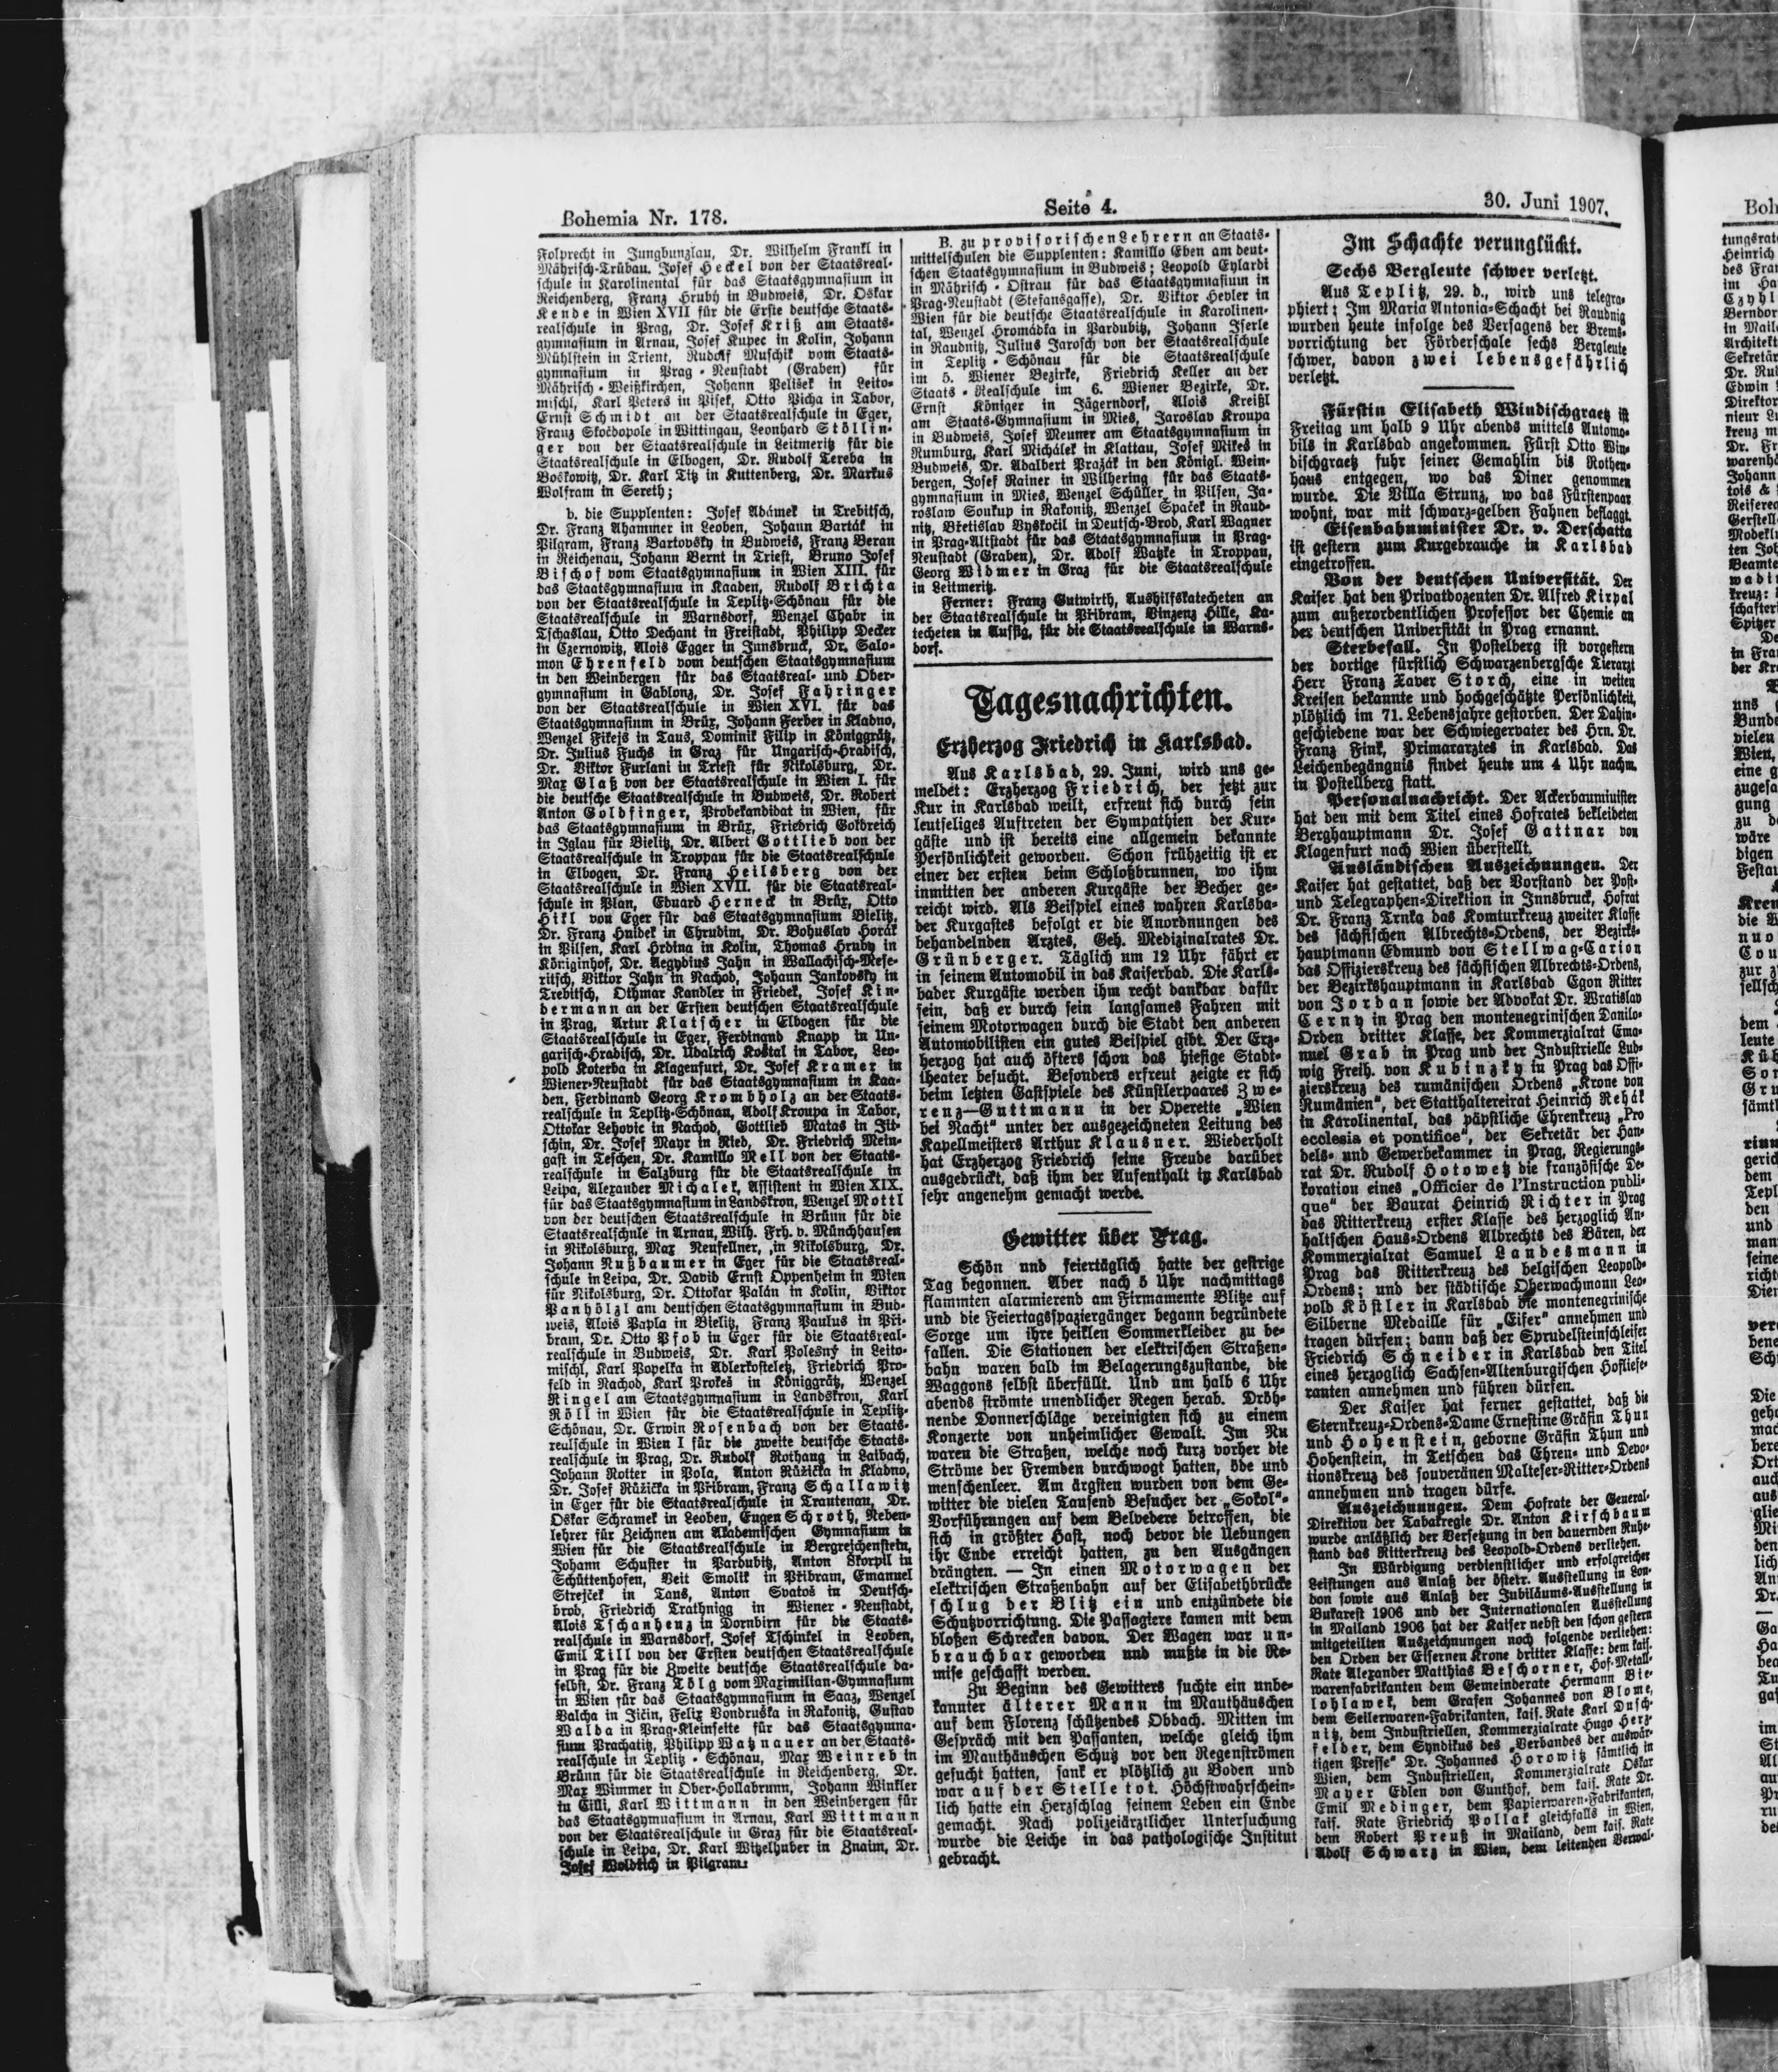 Bohemia Nr. 178.
Seite 4.
30. Juni 1907.
Folprecht in Jungbunzlau, Dr. Wilhelm Frankl in
Mährisch-Trübau. Josef Heckel von der Staatsreal-
schule in Karolinental für das Staatsgymnasium in
Reichenberg, Franz Hrubý in Budweis, Dr. Oskar
Kende in Wien XVII für die Erste deutsche Staats-
realschule in Prag, Dr. Josef Kriß am Staats-
gymnasium in Arnau, Josef Kupec in Kolin, Johann
Mühlstein in Trient, Rudolf Muschik vom Staats-
gymnasium in Prag-Neustadt (Graben) für
Mährisch-Weißkirchen, Johann Pelíšek in Leito-
mischl, Karl Peters in Pisek, Otto Picha in Tabor,
Ernst Schmidt an der Staatsrealschule in Eger,
Franz Skočdopole in Wittingau, Leonhard Stöllin-
ger von der Staatsrealschule in Leitmeritz für die
Staatsrealschule in Elbogen, Dr. Rudolf Tereba in
Boskowitz, Dr. Karl Titz in Kuttenberg, Dr. Markus
Wolfram in Sereth;
b. die Supplenten: Josef Adámek in Trebitsch,
Dr. Franz Ahammer in Leoben, Johann Barták in
Pilgram, Franz Bartovský in Budweis, Franz Beran
in Reichenau, Johann Bernt in Triest, Bruno Josef
Bischof vom Staatsgymnasium in Wien XIII. für
das Staatsgymnasium in Kaaden, Rudolf Brichta
von der Staatsrealschule in Teplitz-Schönau für die
Staatsrealschule in Warnsdorf, Wenzel Chabr in
Tschaslau, Otto Dechant in Freistadt, Philipp Decker
in Czernowitz, Alois Egger in Innsbruck, Dr. Salo-
mon Ehrenfeld vom deutschen Staatsgymnasium
in den Weinbergen für das Staatsreal- und Ober-
gymnasium in Gablonz, Dr. Josef Fahringer
von der Staatsrealschule in Wien XVI. für das
Staatsgymnasium in Brüx, Johann Ferber in Kladno,
Wenzel Fikejs in Taus, Dominik Filip in Königgrätz,
Dr. Julius Fuchs in Graz für Ungarisch-Hradisch,
Dr. Viktor Furlani in Triest für Nikolsburg, Dr.
Max Glaß von der Staatsrealschule in Wien I. für
die deutsche Staatsrealschule in Budweis, Dr. Robert
Anton Goldfinger, Probekandidat in Wien, für
das Staatsgymnasium in Brüx, Friedrich Goldreich
in Iglau für Bielitz, Dr. Albert Gottlieb von der
Staatsrealschule in Troppau für die Staatsrealschule
in Elbogen, Dr. Franz Heilsberg von der
Staatsrealschule in Wien XVII. für die Staatsreal-
schule in Plan, Eduard Herneck in Brüx, Otto
Hikl von Eger für das Staatsgymnasium Bielitz,
Dr. Franz Hnidek in Chrudim, Dr. Bohuslav Horák
in Pilsen, Karl Hrdina in Kolin, Thomas Hruby in
Königinhof, Dr. Aegydius Jahn in Wallachisch-Mese-
ritsch, Viktor Jahn in Nachod, Johann Jankovský in
Trebitsch, Othmar Kandler in Friedek, Josef Kin-
dermann an der Ersten deutschen Staatsrealschule
in Prag, Artur Klatscher in Elbogen für die
Staatsrealschule in Eger, Ferdinand Knapp in Un-
garisch-Hradisch, Dr. Udalrich Kostal in Tabor, Leo-
pold Koterba in Klagenfurt, Dr. Josef Kramer in
Wiener-Neustadt für das Staatsgymnasium in Kaa-
den, Ferdinand Georg Krombholz an der Staats-
realschule in Teplitz-Schönau, Adolf Kroupa in Tabor,
Ottokar Lehovic in Nachod, Gottlieb Matas in Jit-
schin, Dr. Josef Mayr in Ried, Dr. Friedrich Mein-
gast in Teschen, Dr. Kamillo Mell von der Staats-
realschule in Salzburg für die Staatsrealschule in
Leipa, Alexander Michalek, Assistent in Wien XIX.
für das Staatsgymnasium in Landskron, Wenzel Mottl
von der deutschen Staatsrealschule in Brünn für die
Staatsrealschule in Arnau, Wilh. Frh. v. Münchhausen
in Nikolsburg, Max Neufellner, in Nikolsburg, Dr.
Johann Nußbaumer in Eger für die Staatsreal-
schule in Leipa, Dr. David Ernst Oppenheim in Wien
für Nikolsburg, Dr. Ottokar Palán in Kolin, Viktor
Panhölzl am deutschen Staatsgymnasium in Bud-
weis, Alois Papla in Bielitz, Franz Paulus in Při-
bram, Dr. Otto Pfob in Eger für die Staatsreal-
realschule in Budweis, Dr. Karl Polesný in Leito-
mischl, Karl Popelka in Adlerkosteletz, Friedrich Pro-
feld in Nachod, Karl Prokeš in Königgrätz, Wenzel
Ringel am Staatsgymnasium in Landskron, Karl
Röll in Wien für die Staatsrealschule in Teplitz-
Schönau, Dr. Erwin Rosenbach von der Staats-
realschule in Wien I für die zweite deutsche Staats-
realschule in Prag, Dr. Rudolf Rothaug in Laibach,
Johann Rotter in Pola, Anton Růžička in Kladno,
Dr. Josef Růžička in Přibram, Franz Schallawitz
in Eger für die Staatsrealschule in Trautenau, Dr.
Oskar Schramek in Leoben, Eugen Schroth, Neben-
lehrer für Zeichnen am Akademischen Gymnasium in
Wien für die Staatsrealschule in Bergreichenstein,
Johann Schuster in Pardubitz, Anton Skorpil in
Schüttenhofen, Veit Smolik in Přibram, Emanuel
Strejček in Taus, Anton Svatoš in Deutsch-
brod, Friedrich Trathnigg in Wiener-Neustadt,
Alois Tschanhenz in Dornbirn für die Staats-
realschule in Warnsdorf, Josef Tschinkel in Leoben,
Emil Till von der Ersten deutschen Staatsrealschule
in Prag für die Zweite deutsche Staatsrealschule da-
selbst, Dr. Franz Tölg vom Maximilian-Gymnasium
in Wien für das Staatsgymnasium in Saaz, Wenzel
Valcha in Jičin, Felix Vondruška in Rakonitz, Gustav
Walda in Prag-Kleinseite für das Staatsgymna-
sium Prachatitz, Philipp Watznauer an der Staats-
realschule in Teplitz-Schönau, Max Weinreb in
Brünn für die Staatsrealschule in Reichenberg, Dr.
Max Wimmer in Ober-Hollabrunn, Johann Winkler
in Cilli, Karl Wittmann in den Weinbergen für
das Staatsgymnasium in Arnau, Karl Wittmann
von der Staatsrealschule in Graz für die Staatsreal-
schule in Leipa, Dr. Karl Witzelhuber in Znaim, Dr.
Josef Woldřich in Pilgram.
B. zu provisorischen Lehrern an Staats-
mittelschulen die Supplenten: Kamillo Eben am deut-
schen Staatsgymnasium in Budweis; Leopold Eylardi
in Mährisch-Ostrau für das Staatsgymnasium in
Prag-Neustadt (Stefansgasse), Dr. Viktor Hevler in
Wien für die deutsche Staatsrealschule in Karolinen-
tal, Wenzel Hromádka in Pardubitz, Johann Iserle
in Raudnitz, Julius Jarosch von der Staatsrealschule
in Teplitz-Schönau für die Staatsrealschule
im 5. Wiener Bezirke, Friedrich Keller an der
Staats-Realschule im 6. Wiener Bezirke, Dr.
Ernst Königer in Jägerndorf, Alois Kreißl
am Staats-Gymnasium in Mies, Jaroslav Kroupa
in Budweis, Josef Meuner am Staatsgymnasium in
Rumburg, Karl Michálek in Klattau, Josef Mikes in
Budweis, Dr. Adalbert Pražák in den Königl. Wein-
bergen, Josef Rainer in Wilhering für das Staats-
gymnasium in Mies, Wenzel Schüller in Pilsen, Ja-
roslaw Soukup in Rakonitz, Wenzel Spaček in Raud-
nitz, Břetislav Vyskočil in Deutsch-Brod, Karl Wagner
in Prag-Altstadt für das Staatsgymnasium in Prag-
Neustadt (Graben), Dr. Adolf Watzke in Troppau,
Georg Widmer in Graz für die Staatsrealschule
in Leitmeritz.
Ferner: Franz Gutwirth, Aushilfskatecheten an
der Staatsrealschule in Přibram, Vinzenz Hille, Ka-
techeten in Aussig, für die Staatsrealschule in Warns-
dorf.
Tagesnachrichten.
Erzherzog Friedrich in Karlsbad.
Aus Karlsbad, 29. Juni, wird uns ge-
meldet: Erzherzog Friedrich, der jetzt zur
Kur in Karlsbad weilt, erfreut sich durch sein
leutseliges Auftreten der Sympathien der Kur-
gäste und ist bereits eine allgemein bekannte
Persönlichkeit geworden. Schon frühzeitig ist er
einer der ersten beim Schloßbrunnen, wo ihm
inmitten der anderen Kurgäste der Becher ge-
reicht wird. Als Beispiel eines wahren Karlsba-
der Kurgastes befolgt er die Anordnungen des
behandelnden Arztes, Geh. Medizinalrates Dr.
Grünberger. Täglich um 12 Uhr fährt er
in seinem Automobil in das Kaiserbad. Die Karls-
bader Kurgäste werden ihm recht dankbar dafür
sein, daß er durch sein langsames Fahren mit
seinem Motorwagen durch die Stadt den anderen
Automobilisten ein gutes Beispiel gibt. Der Erz-
herzog hat auch öfters schon das hiesige Stadt-
theater besucht. Besonders erfreut zeigte er sich
beim letzten Gastspiele des Künstlerpaares Zwe-
renz—Guttmann in der Operette „Wien
bei Nacht“ unter der ausgezeichneten Leitung des
Kapellmeisters Arthur Klausner. Wiederholt
hat Erzherzog Friedrich seine Freude darüber
ausgedrückt, daß ihm der Aufenthalt in Karlsbad
sehr angenehm gemacht werde.
Gewitter über Prag.
Schön und feiertäglich hatte der gestrige
Tag begonnen. Aber nach 5 Uhr nachmittags
flammten alarmierend am Firmamente Blitze auf
und die Feiertagsspaziergänger begann begründete
Sorge um ihre heiklen Sommerkleider zu be-
fallen. Die Stationen der elektrischen Straßen-
bahn waren bald im Belagerungszustande, die
Waggons selbst überfüllt. Und um halb 6 Uhr
abends strömte unendlicher Regen herab. Dröh-
nende Donnerschläge vereinigten sich zu einem
Konzerte von unheimlicher Gewalt. Im Nu
waren die Straßen, welche noch kurz vorher die
Ströme der Fremden durchwogt hatten, öde und
menschenleer. Am ärgsten wurden von dem Ge-
witter die vielen Tausend Besucher der „Sokol“-
Vorführungen auf dem Belvedere betroffen, die
sich in größter Hast, noch bevor die Uebungen
ihr Ende erreicht hatten, zu den Ausgängen
drängten. — In einen Motorwagen der
elektrischen Straßenbahn auf der Elisabethbrücke
schlug der Blitz ein und entzündete die
Schutzvorrichtung. Die Passagiere kamen mit dem
bloßen Schrecken davon. Der Wagen war un-
brauchbar geworden und mußte in die Re-
mise geschafft werden.
Zu Beginn des Gewitters suchte ein unbe-
kannter älterer Mann im Mauthäuschen
auf dem Florenz schützendes Obdach. Mitten im
Gespräch mit den Passanten, welche gleich ihm
im Mauthäuschen Schutz vor den Regenströmen
gesucht hatten, sank er plötzlich zu Boden und
war auf der Stelle tot. Höchstwahrschein-
lich hatte ein Herzschlag seinem Leben ein Ende
gemacht. Nach polizeiärztlicher Untersuchung
wurde die Leiche in das pathologische Institut
gebracht.
Im Schachte verunglückt.
Sechs Bergleute schwer verletzt.
Aus Teplitz, 29. d., wird uns telegra-
phiert: Im Maria Antonia-Schacht bei Raudnig
wurden heute infolge des Versagens der Brems-
vorrichtung der Förderschale sechs Bergleute
schwer, davon zwei lebensgefährlich
verletzt.
Fürstin Elisabeth Windischgraetz ist
Freitag um halb 9 Uhr abends mittels Automo-
bils in Karlsbad angekommen. Fürst Otto Win-
dischgraetz fuhr seiner Gemahlin bis Rothen-
haus entgegen, wo das Diner genommen
wurde. Die Villa Strunz, wo das Fürstenpaar
wohnt, war mit schwarz-gelben Fahnen beflaggt.
Eisenbahnminister Dr. v. Derschatta
ist gestern zum Kurgebrauche in Karlsbad
eingetroffen.
Von der deutschen Universität. Der
Kaiser hat den Privatdozenten Dr. Alfred Kirpal
zum außerordentlichen Professor der Chemie an
der deutschen Universität in Prag ernannt.
Sterbefall. In Postelberg ist vorgestern
der dortige fürstlich Schwarzenbergsche Tierarzt
Herr Franz Xaver Storch, eine in weiten
Kreisen bekannte und hochgeschätzte Persönlichkeit,
plötzlich im 71. Lebensjahre gestorben. Der Dahin-
geschiedene war der Schwiegervater des Hrn. Dr.
Franz Fink, Primararztes in Karlsbad. Das
Leichenbegängnis findet heute um 4 Uhr nachm.
in Postellberg statt.
Personalnachricht. Der Ackerbauminister
hat den mit dem Titel eines Hofrates bekleideten
Berghauptmann Dr. Josef Gattnar von
Klagenfurt nach Wien überstellt.
Ausländischen Auszeichnungen. Der
Kaiser hat gestattet, daß der Vorstand der Post-
und Telegraphen-Direktion in Innsbruck, Hofrat
Dr. Franz Trnka das Komturkreuz zweiter Klasse
des sächsischen Albrechts-Ordens, der Bezirks-
hauptmann Edmund von Stellwag-Carion
das Offizierskreuz des sächsischen Albrechts-Ordens,
der Bezirkshauptmann in Karlsbad Egon Ritter
von Jordan sowie der Advokat Dr. Wratislav
Cerny in Prag den montenegrinischen Danilo-
Orden dritter Klasse, der Kommerzialrat Ema-
nuel Grab in Prag und der Industrielle Lud-
wig Freih. von Kubinzky in Prag das Offi-
zierskreuz des rumänischen Ordens „Krone von
Rumänien“, der Statthaltereirat Heinrich Rehák
in Karolinental, das päpstliche Ehrenkreuz „Pro
ecclesia et pontifice“, der Sekretär der Han-
dels- und Gewerbekammer in Prag, Regierungs-
rat Dr. Rudolf Hotowetz die französische De-
koration eines „Officier de l’Instruction publi-
que“ der Baurat Heinrich Richter in Prag
das Ritterkreuz erster Klasse des herzoglich An-
haltischen Haus-Ordens Albrechts des Bären, der
Kommerzialrat Samuel Landesmann in
Prag das Ritterkreuz des belgischen Leopold-
Ordens; und der städtische Oberwachmann Leo-
pold Köstler in Karlsbad die montenegrinische
Silberne Medaille für „Eifer“ annehmen und
tragen dürfen; dann daß der Sprudelsteinschleifer
Friedrich Schneider in Karlsbad den Titel
eines herzoglich Sachsen-Altenburgischen Hofliefe-
ranten annehmen und führen dürfen.
Der Kaiser hat ferner gestattet, daß die
Sternkreuz-Ordens-Dame Ernestine Gräfin Thun
und Hohenstein, geborne Gräfin Thun und
Hohenstein, in Tetschen das Ehren- und Devo-
tionskreuz des souveränen Malteser-Ritter-Ordens
annehmen und tragen dürfe.
Auszeichnungen. Dem Hofrate der General-
Direktion der Tabakregie Dr. Anton Kirschbaum
wurde anläßlich der Versetzung in den dauernden Ruhe-
stand das Ritterkreuz des Leopold-Ordens verliehen.
In Würdigung verdienstlicher und erfolgreicher
Leistungen aus Anlaß der österr. Ausstellung in Lon-
don sowie aus Anlaß der Jubiläums-Ausstellung in
Bukarest 1906 und der Internationalen Ausstellung
in Mailand 1906 hat der Kaiser nebst den schon gestern
mitgeteilten Auszeichnungen noch folgende verliehen:
den Orden der Eisernen Krone dritter Klasse: dem kais.
Rate Alexander Matthias Beschorner, Hof-Metall-
warenfabrikanten dem Gemeinderate Hermann Bie-
lohlawek, dem Grafen Johannes von Blome,
dem Seilerwaren-Fabrikanten, kais. Rate Karl Dusch-
nitz, dem Industriellen, Kommerzialrate Hugo Herz-
felder, dem Syndikus des „Verbandes der auswär-
tigen Presse“ Dr. Johannes Horowitz sämtlich in
Wien, dem Industriellen, Kommerzialrate Oskar
Mayer Edlen von Gunthof, dem kais. Rate Dr.
Emil Medinger, dem Papierwaren-Fabrikanten,
kais. Rate Friedrich Pollak gleichfalls in Wien,
dem Robert Preuß in Mailand, dem kais. Rate
Adolf Schwarz in Wien, dem leitenden Verwal-